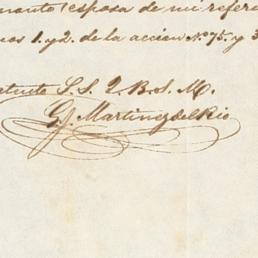 manto esposa de mi referi
nos 1. y 2. de la accion No. 75. y 3
atento S. S. Q. B. S. M.
G. Martinez del Rio